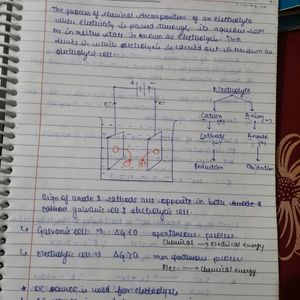 The process of chemical decomposition of an electrolyte
when electricity is passed through its aqueous soln
or in molten state is known as electrolysis. The
device in which electrolysis is carried out is known as
electrolytic cell.
Electrolyte
Cation Anion
(+) (-)
Cathode Anode
(-) (+)
Reduction Oxidation
e-
e-
Sign of anode & cathode are opposite in both
galvanic cell & electrolytic cell.
Galvanic cell ΔG<0 spontaneous process
Chemical → Electrical energy
Electrolytic cell ΔG>0 non spontaneous process
Elec. → chemical energy
* DC source is used for electrolysis